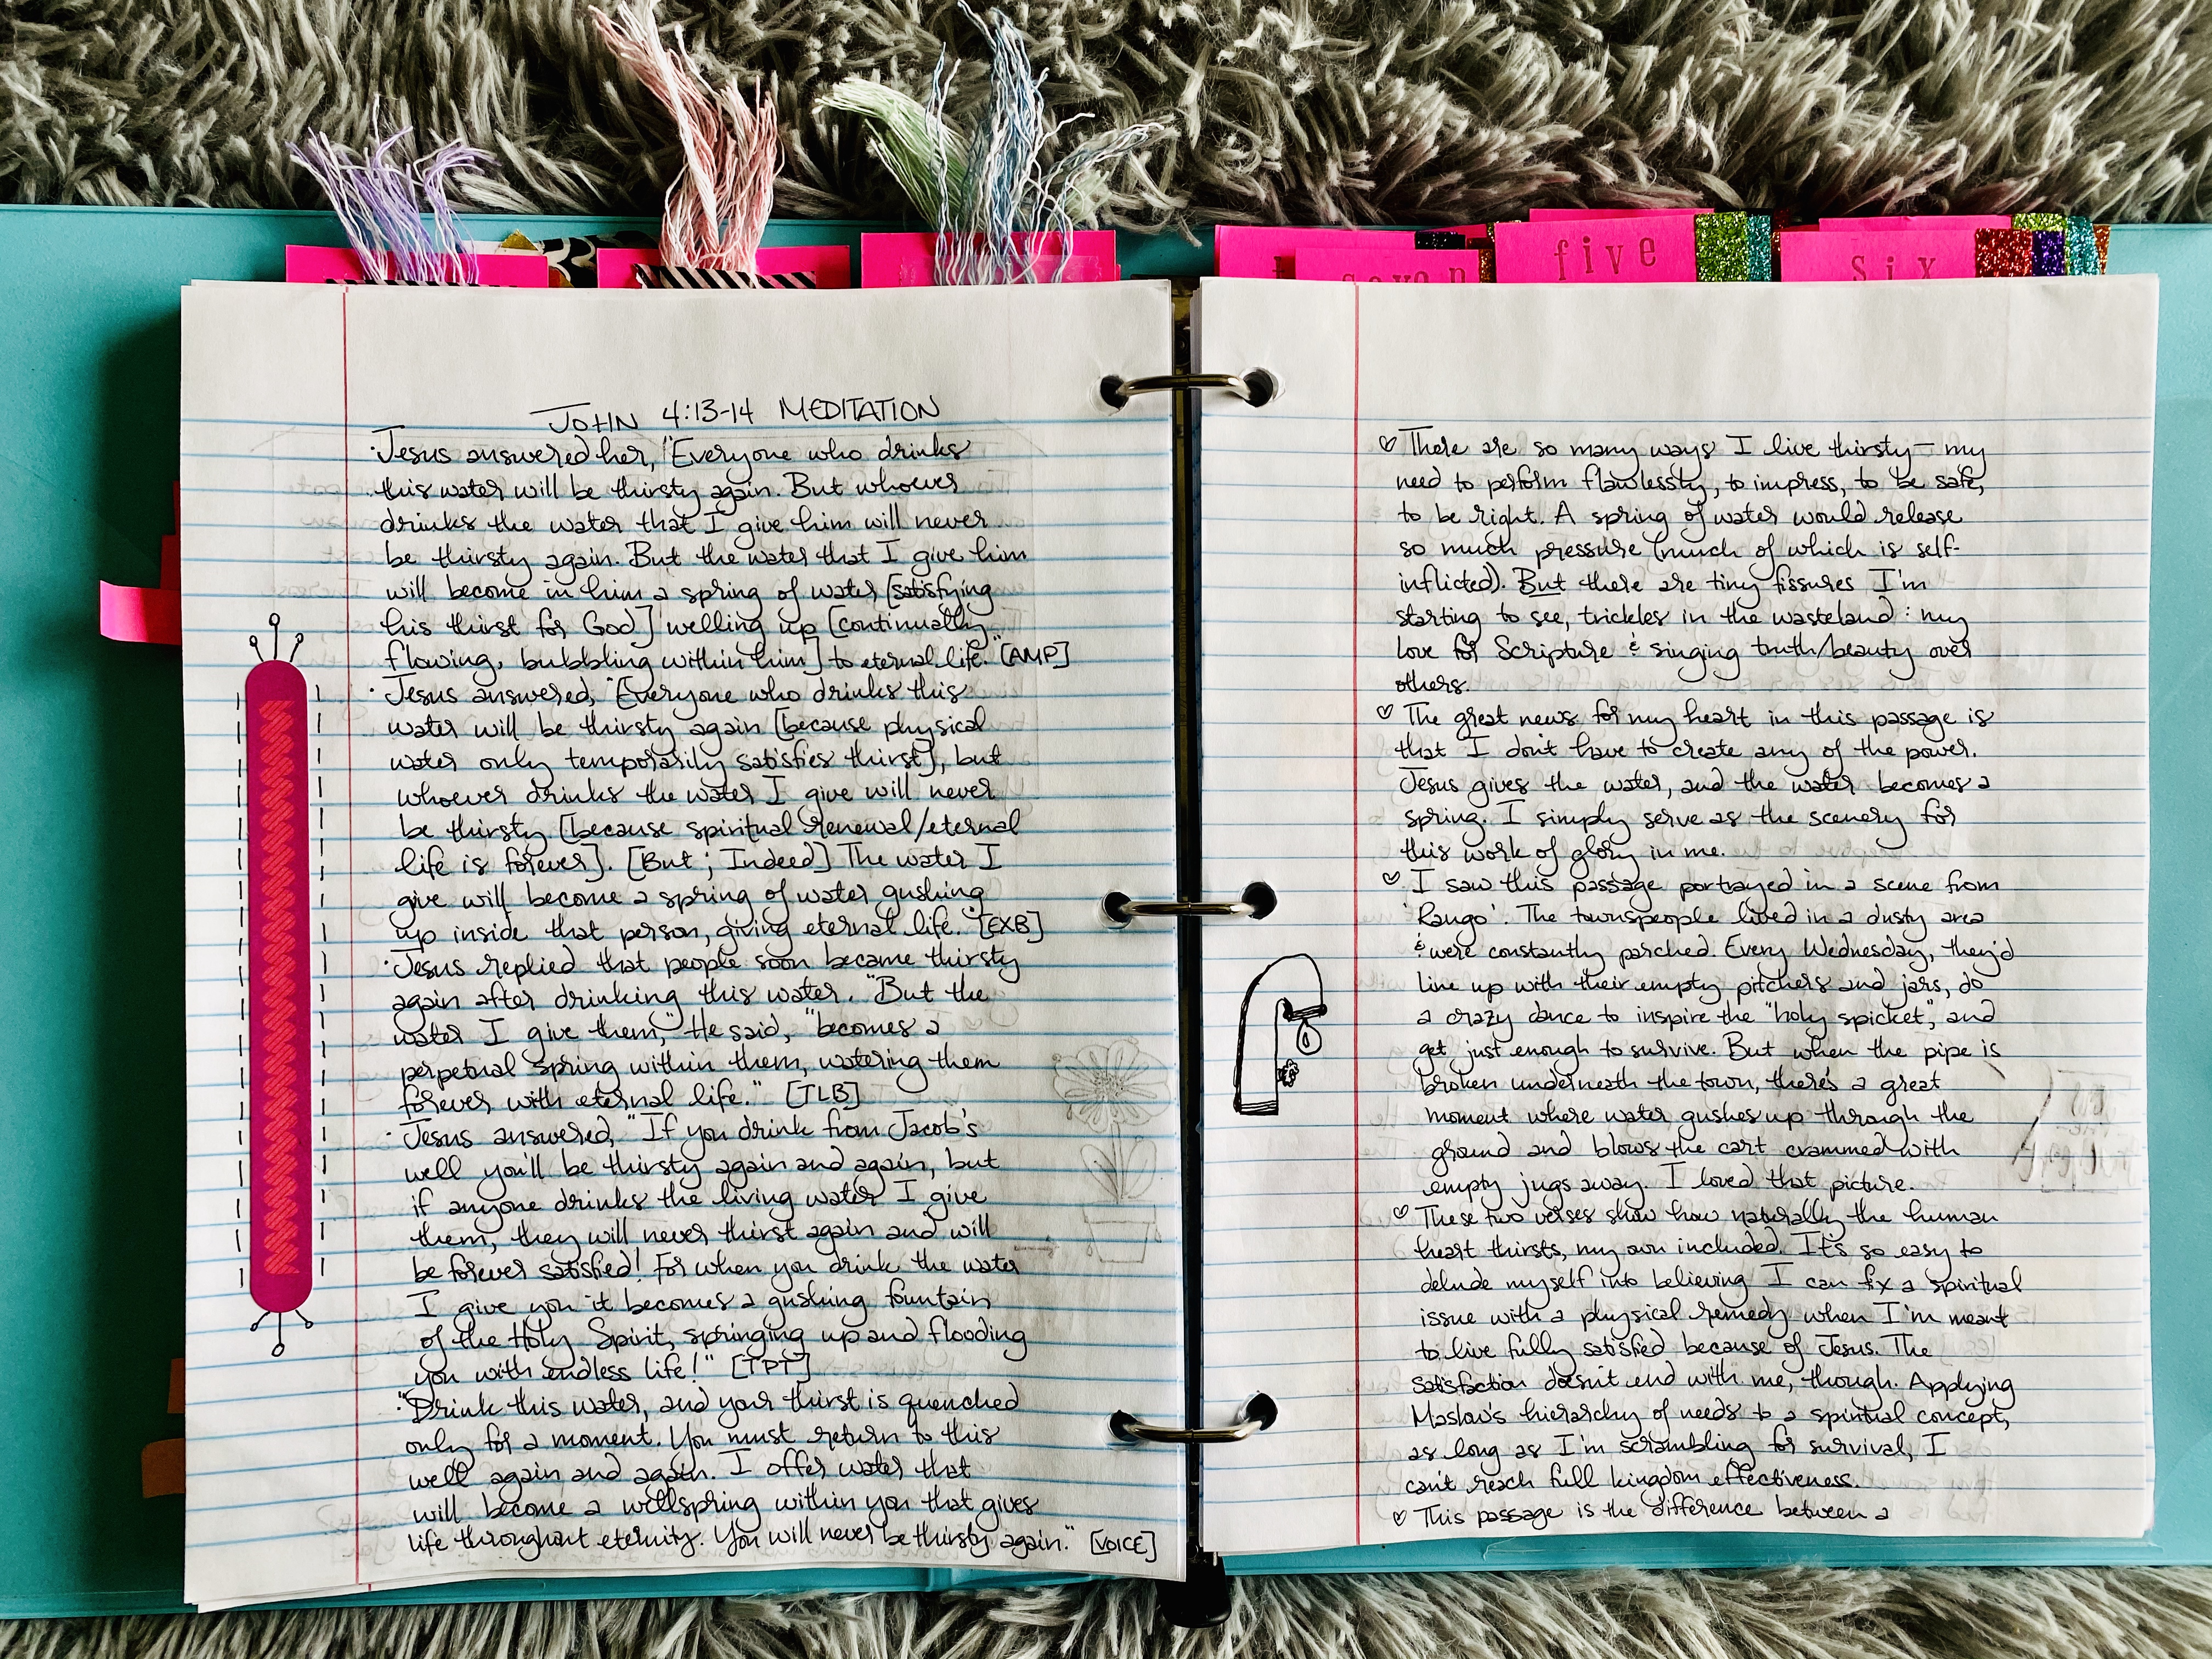 five
six
seven
JOHN 4:13-14 MEDITATION
·Jesus answered her, "Everyone who drinks
this water will be thirsty again. But whoever
drinks the water that I give him will never
be thirsty again. But the water that I give him
will become in him a spring of water [satisfying
his thirst for God] welling up [continually
flowing, bubbling within him] to eternal life." [AMP]
·Jesus answered, "Everyone who drinks this
water will be thirsty again [because physical
water only temporarily satisfies thirst], but
whoever drinks the water I give will never
be thirsty [because spiritual renewal/eternal
life is forever]. [But; Indeed] The water I
give will become a spring of water gushing
up inside that person, giving eternal life. [EXB]
·Jesus replied that people soon became thirsty
again after drinking this water. "But the
water I give them," He said, "becomes a
perpetual spring within them, watering them
forever with eternal life." [TLB]
·Jesus answered, "If you drink from Jacob's
well you'll be thirsty again and again, but
if anyone drinks the living water I give
them, they will never thirst again and will
be forever satisfied! For when you drink the water
I give you it becomes a gushing fountain
of the Holy Spirit, springing up and flooding
you with endless life!" [TPT]
·"Drink this water, and your thirst is quenched
only for a moment. You must return to this
well again and again. I offer water that
will become a wellspring within you that gives
life throughout eternity. You will never be thirsty again." [VOICE]
♡ There are so many ways I live thirsty – my
need to perform flawlessly, to impress, to be safe,
to be right. A spring of water would release
so much pressure (much of which is self-
inflicted). But there are tiny fissures I'm
starting to see, trickles in the wasteland: my
love for Scripture & singing truth/beauty over
others.
♡ The great news for my heart in this passage is
that I don't have to create any of the power.
Jesus gives the water, and the water becomes a
spring. I simply serve as the scenery for
this work of glory in me.
♡ I saw this passage portrayed in a scene from
'Rango'. The townspeople lived in a dusty area
& were constantly parched. Every Wednesday, they'd
line up with their empty pitchers and jars, do
a crazy dance to inspire the "holy spicket", and
get just enough to survive. But when the pipe is
broken underneath the town, there's a great
moment where water gushes up through the
ground and blows the cart crammed with
empty jugs away. I loved that picture.
♡ These two verses show how naturally the human
heart thirsts, my own included. It's so easy to
delude myself into believing I can fix a spiritual
issue with a physical remedy when I'm meant
to live fully satisfied because of Jesus. The
satisfaction doesn't end with me, though. Applying
Maslow's hierarchy of needs to a spiritual concept,
as long as I'm scrambling for survival, I
can't reach full kingdom effectiveness.
♡ This passage is the difference between a